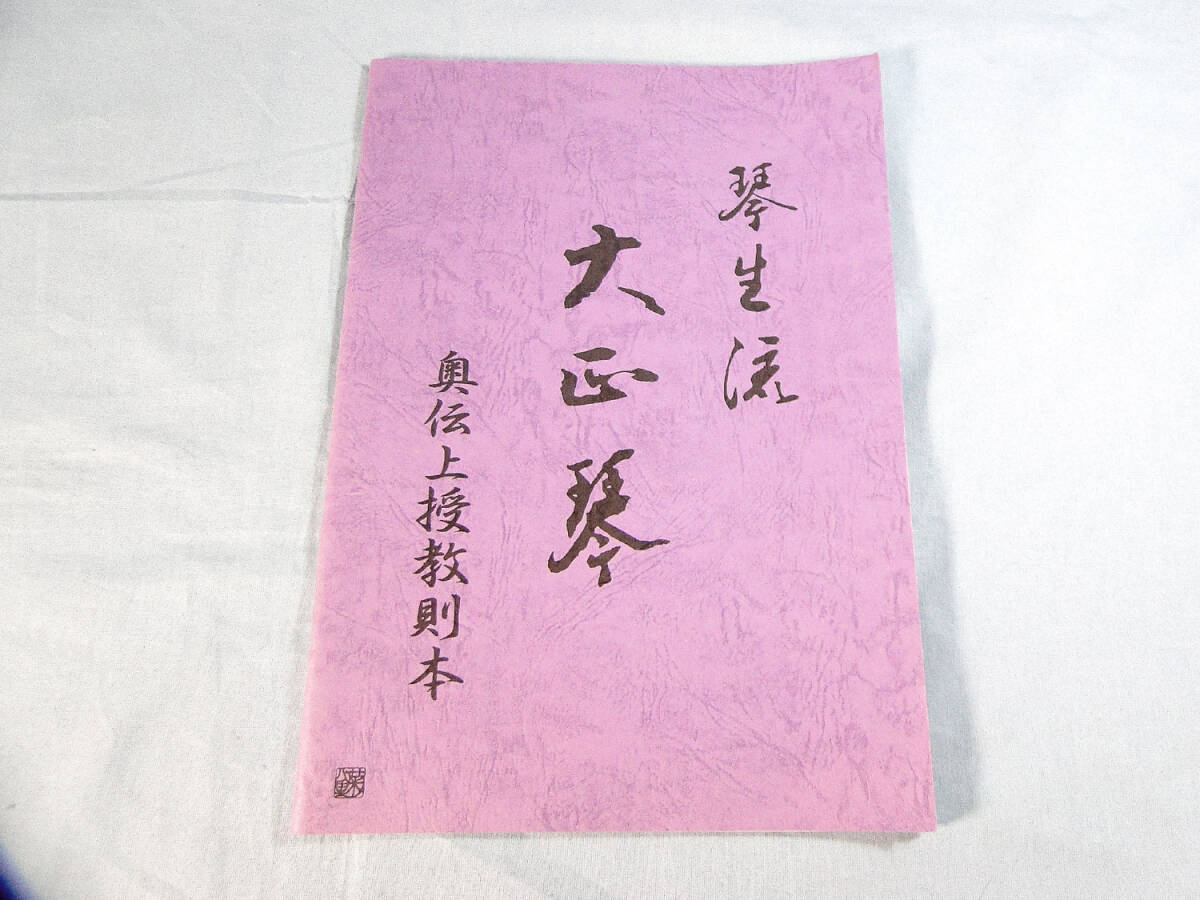 琴生流
大正琴
奥伝上授教則本